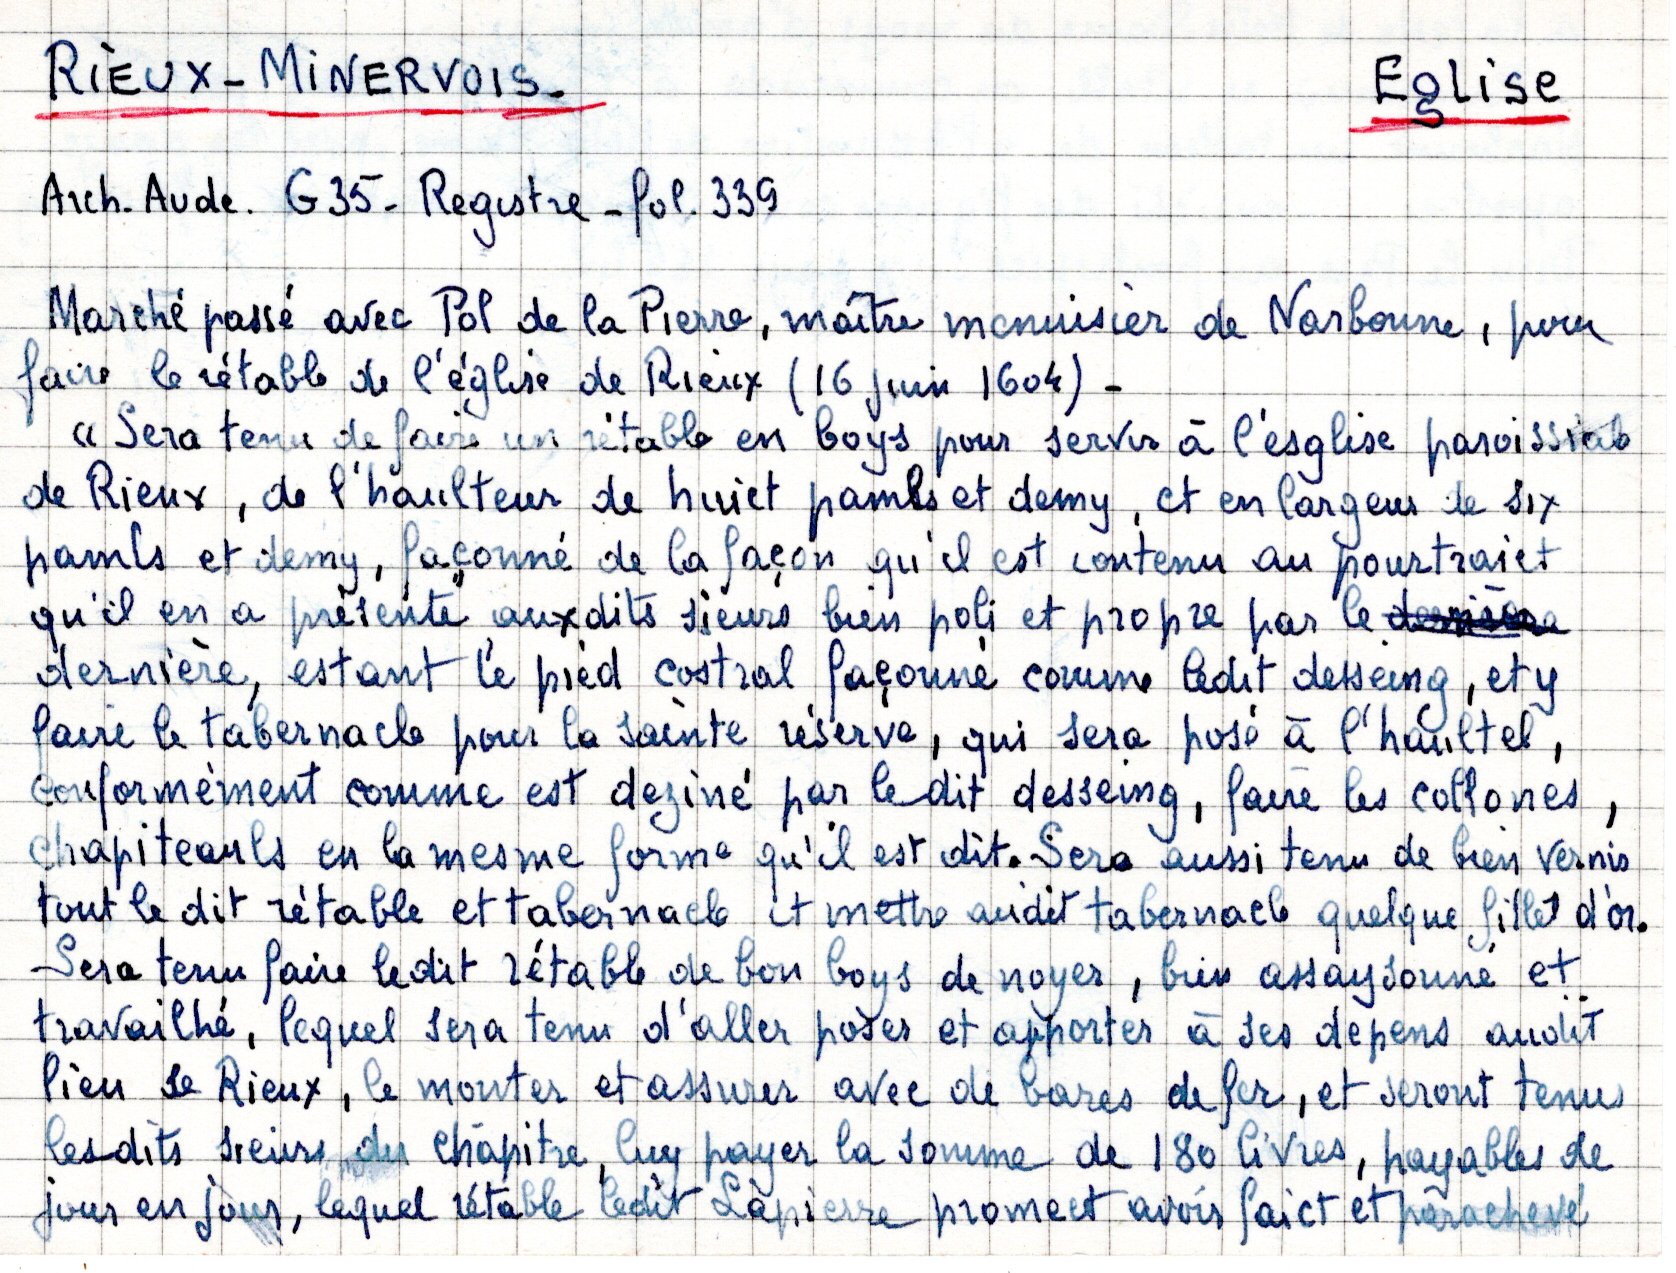 RIÈUX-MINERVOIS. Eglise
Arch. Aude. G35- Registre - fol. 339
Marché passé avec Pol de la Pierre, maître menuisier de Narbonne, pour
faire le rétable de l'église de Rieux (16 juin 1604) -
« Sera tenu de faire un rétable en boys pour servir à l'ésglise paroissiale
de Rieux, de l'haulteur de huict pamls et demy, et en largeur de six
pamls et demy, façonné de la façon qu'il est contenu au pourtraict
qu'il en a présenté auxdits sieurs bien poli et propre par le dernière
dernière, estant le pied costral façonné comme ledit desseing, et y
faire le tabernacle pour la sainte réserve, qui sera posé à l'haultel,
conformément comme est deziné par ledit desseing, faire les collones,
chapiteauls en la mesme forme qu'il est dit. Sera aussi tenu de bien vernis
tout le dit rétable et tabernacle et mettre audit tabernacle quelque fillet d'or.
Sera tenu faire ledit rétable de bon boys de noyer, bien assaysonné et
travailhé, lequel sera tenu d'aller poser et apporter à ses depens audit
lieu de Rieux, le monter et assurer avec de bares de fer, et seront tenus
lesdits sieurs du chapitre, luy payer la somme de 180 livres, payables de
jour en jour, lequel rétable ledit Lapierre promect avoir faict et parachevé